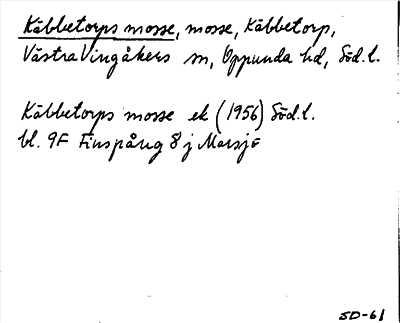 Käbbetorps mosse, mosse, Käbbetorp,
Västra Vingåkers sn, Oppunda hd, Söd.l.
Käbbetorps mosse ek (1956) Söd.l.
bl. 9F Finspång 8 j Marsjö
SD-61